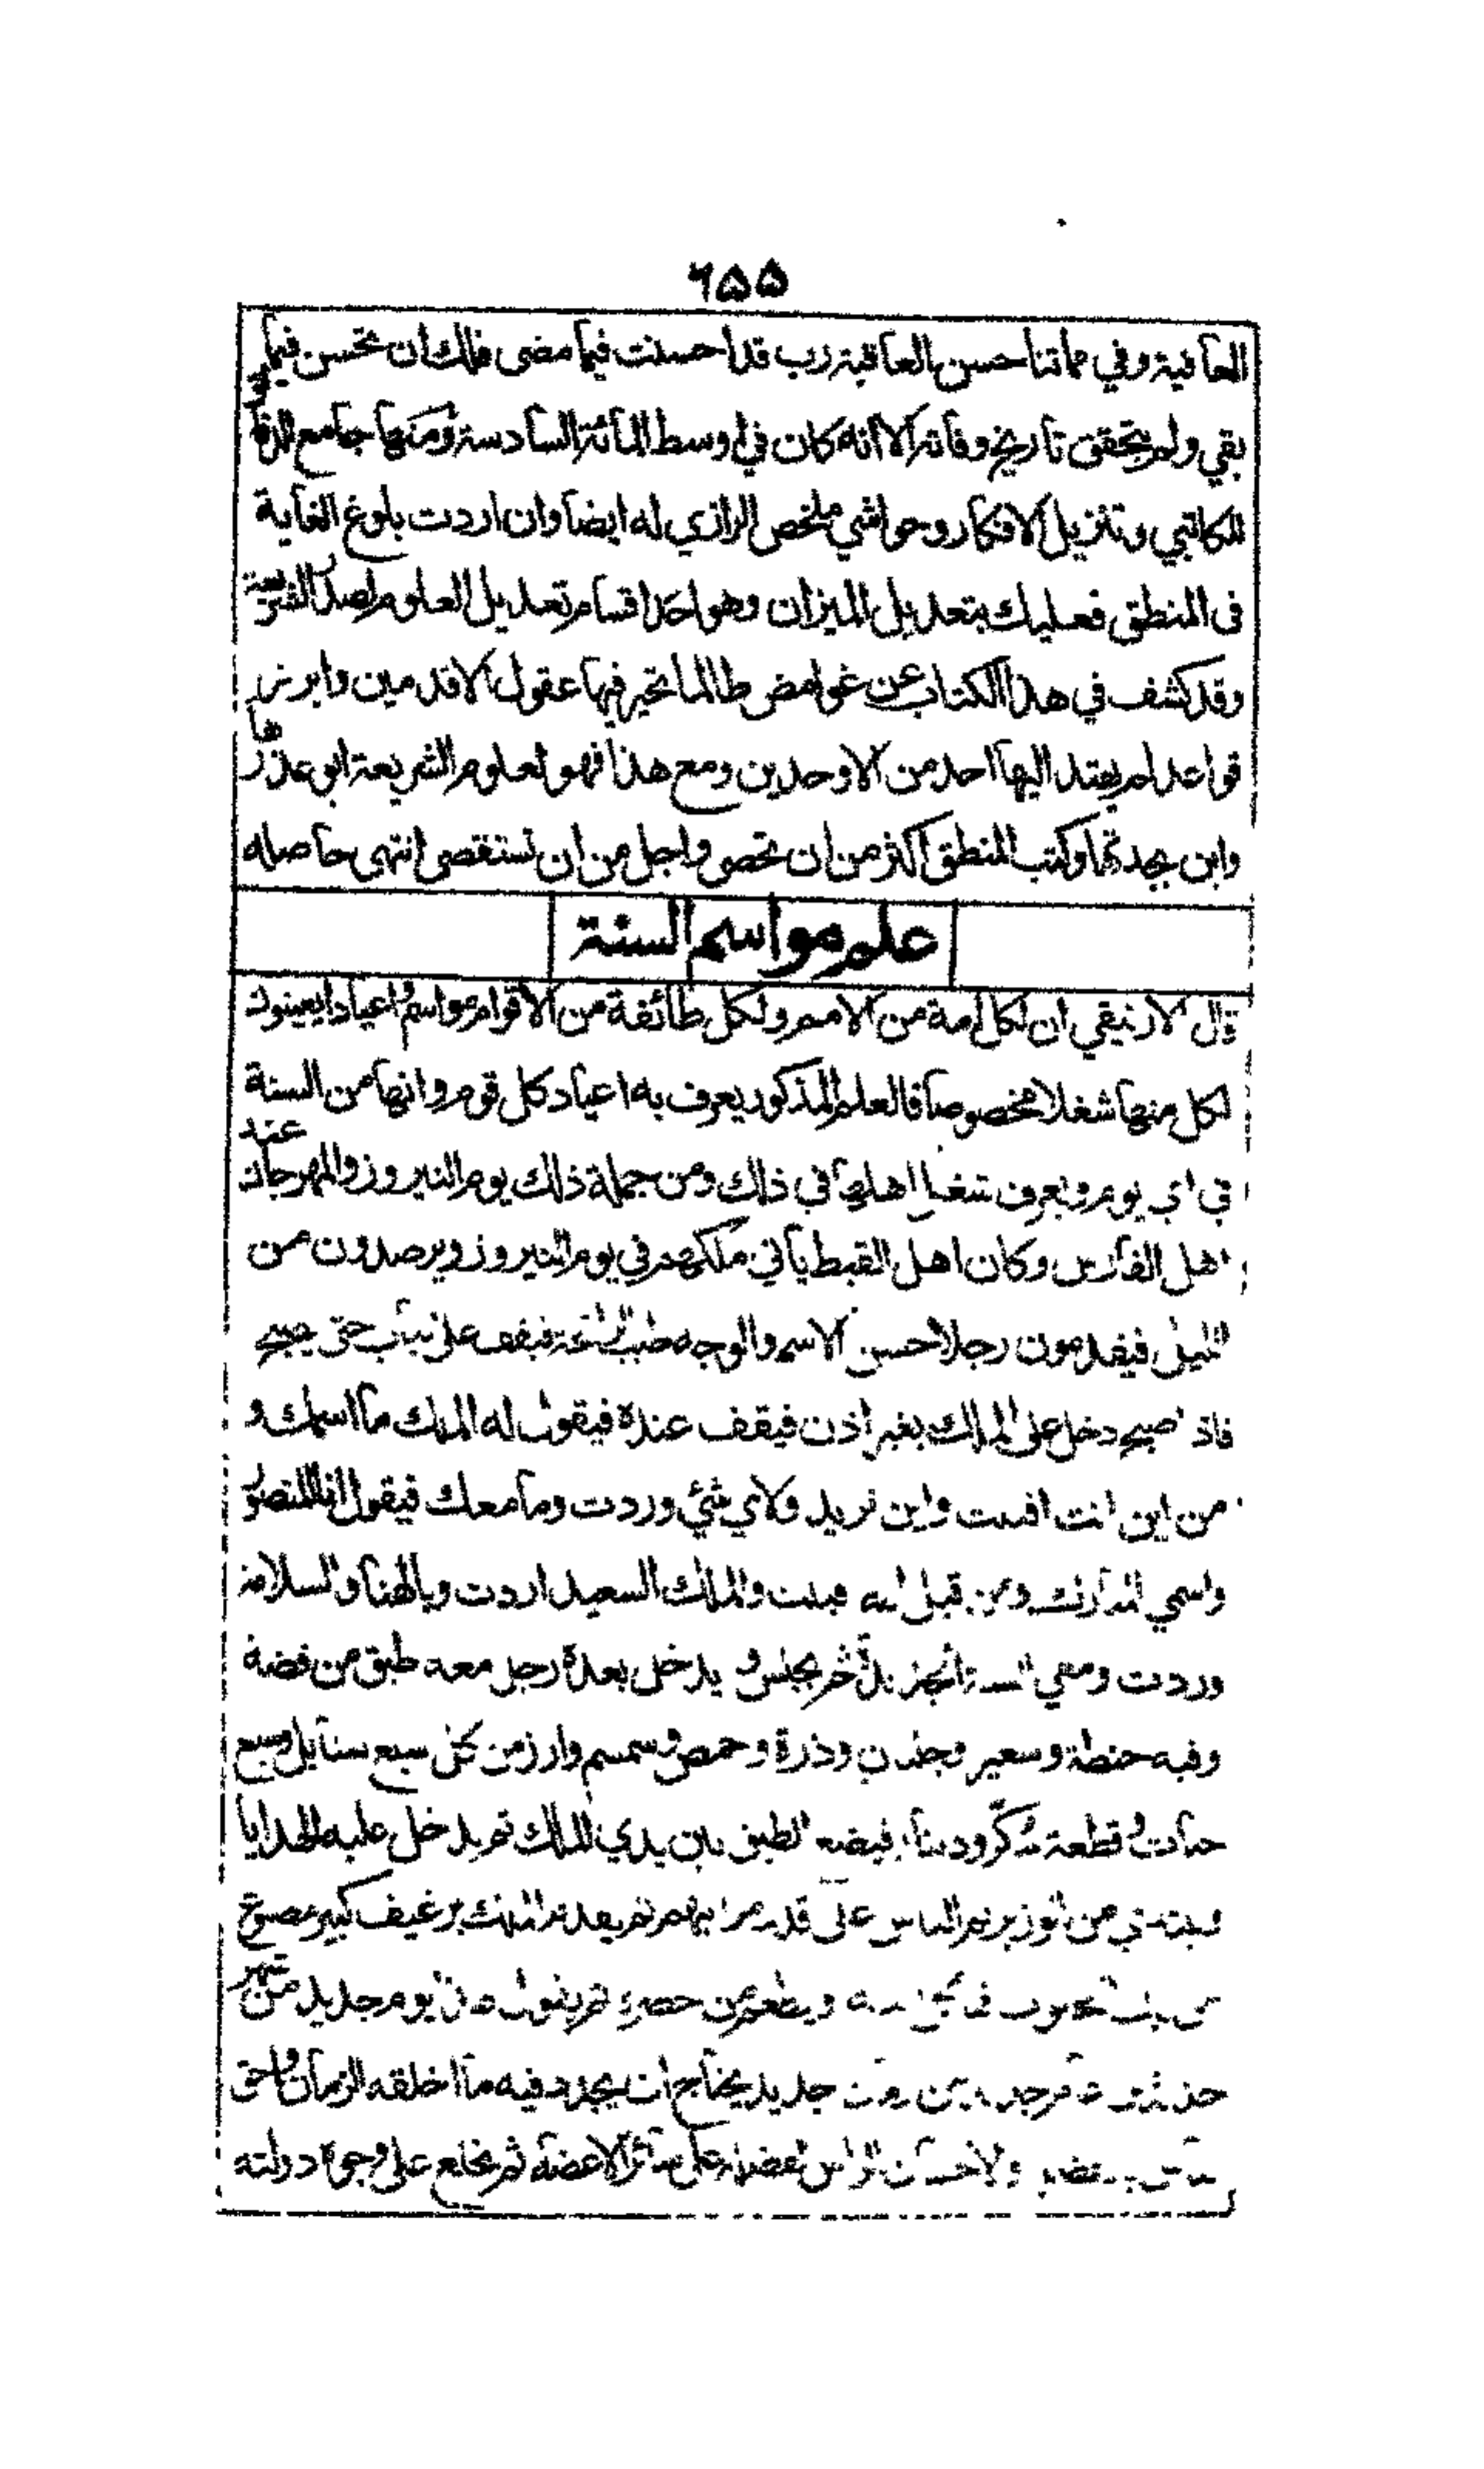 ٦٥٥
العافية وفي مماتنا حسن العاقبة رب قد احسنت فيما مضى فلك ان تحسن فيما
بقي ولم يتحقق تاريخ وفاته الا انه كان في اوسط المائة السادسة ومنها جامع الدقائق
للكاتبي وتنزيل الافكار وحواشي ملخص الرازي له ايضا وان اردت بلوغ الغاية
فى المنطق فعليك بتعديل الميزان وهو احد اقسام تعديل العلوم لصدر الشريعة
وقد كشف في هذا الكتاب عن غوامض طالما تحير فيها عقول الاقدمين وابرز
قواعد لم يهتد اليها احد من الاوحدين ومع هذا فهو لعلوم الشريعة ابو عذرها
وابن بجدتها وكتب المنطق اكثر من ان تحصى واجل من ان تستقصى انتهى حاصله
علم مواسم السنة
قال الارنيقي ان لكل امة من الامم ولكل طائفة من الاقوام مواسم واعيادا يعينون
لكل منها شغلا مخصوصا فالعلم المذكور يعرف به اعياد كل قوم وانها من السنة
في اي يوم ويعرف شغل اهلها في ذلك ومن جملة ذلك يوم النيروز والمهرجان عند
اهل الفارس وكان اهل القبط ياتي ملكهم في يوم النيروز ويرصدون من
الليل فيقدمون رجلا حسن الاسم والوجه طيب الرائحة فيقف على الباب حتى يصبح
فاذا اصبح دخل على الملك بغير اذن فيقف عنده فيقول له الملك ما اسمك و
من اين انت اقبلت واين تريد ولاي شئ وردت وما معك فيقول انا المنصور
واسمي المبارك ومن قبل الله اقبلت والملك السعيد اردت وبالهنا والسلامة
وردت ومعي السنة الجديدة ثم يجلس و يدخل بعده رجل معه طبق من فضة
وفيه حنطة وشعير وجلبان وذرة وحمص وسمسم وارز من كل سبع سنابل وسبع
حبات و قطعة سكر ودينار فيضع الطبق بين يدي الملك ثم يدخل عليه الهدايا
ويبتدئ من الوزير ثم الناس على قدر مراتبهم ثم يقدم للملك برغيف كبير مصنوع
من تلك الحبوب فياكل منه ويطعم من حضره ثم يقول هذا يوم جديد من شهر
جديد من عام جديد من زمن جديد يحتاج ان يجدد فيه ما اخلقه الزمان واحق
الناس بالفضل والاحسان الراس لفضله على سائر الاعضاء ثم يخلع على وجوه دولته